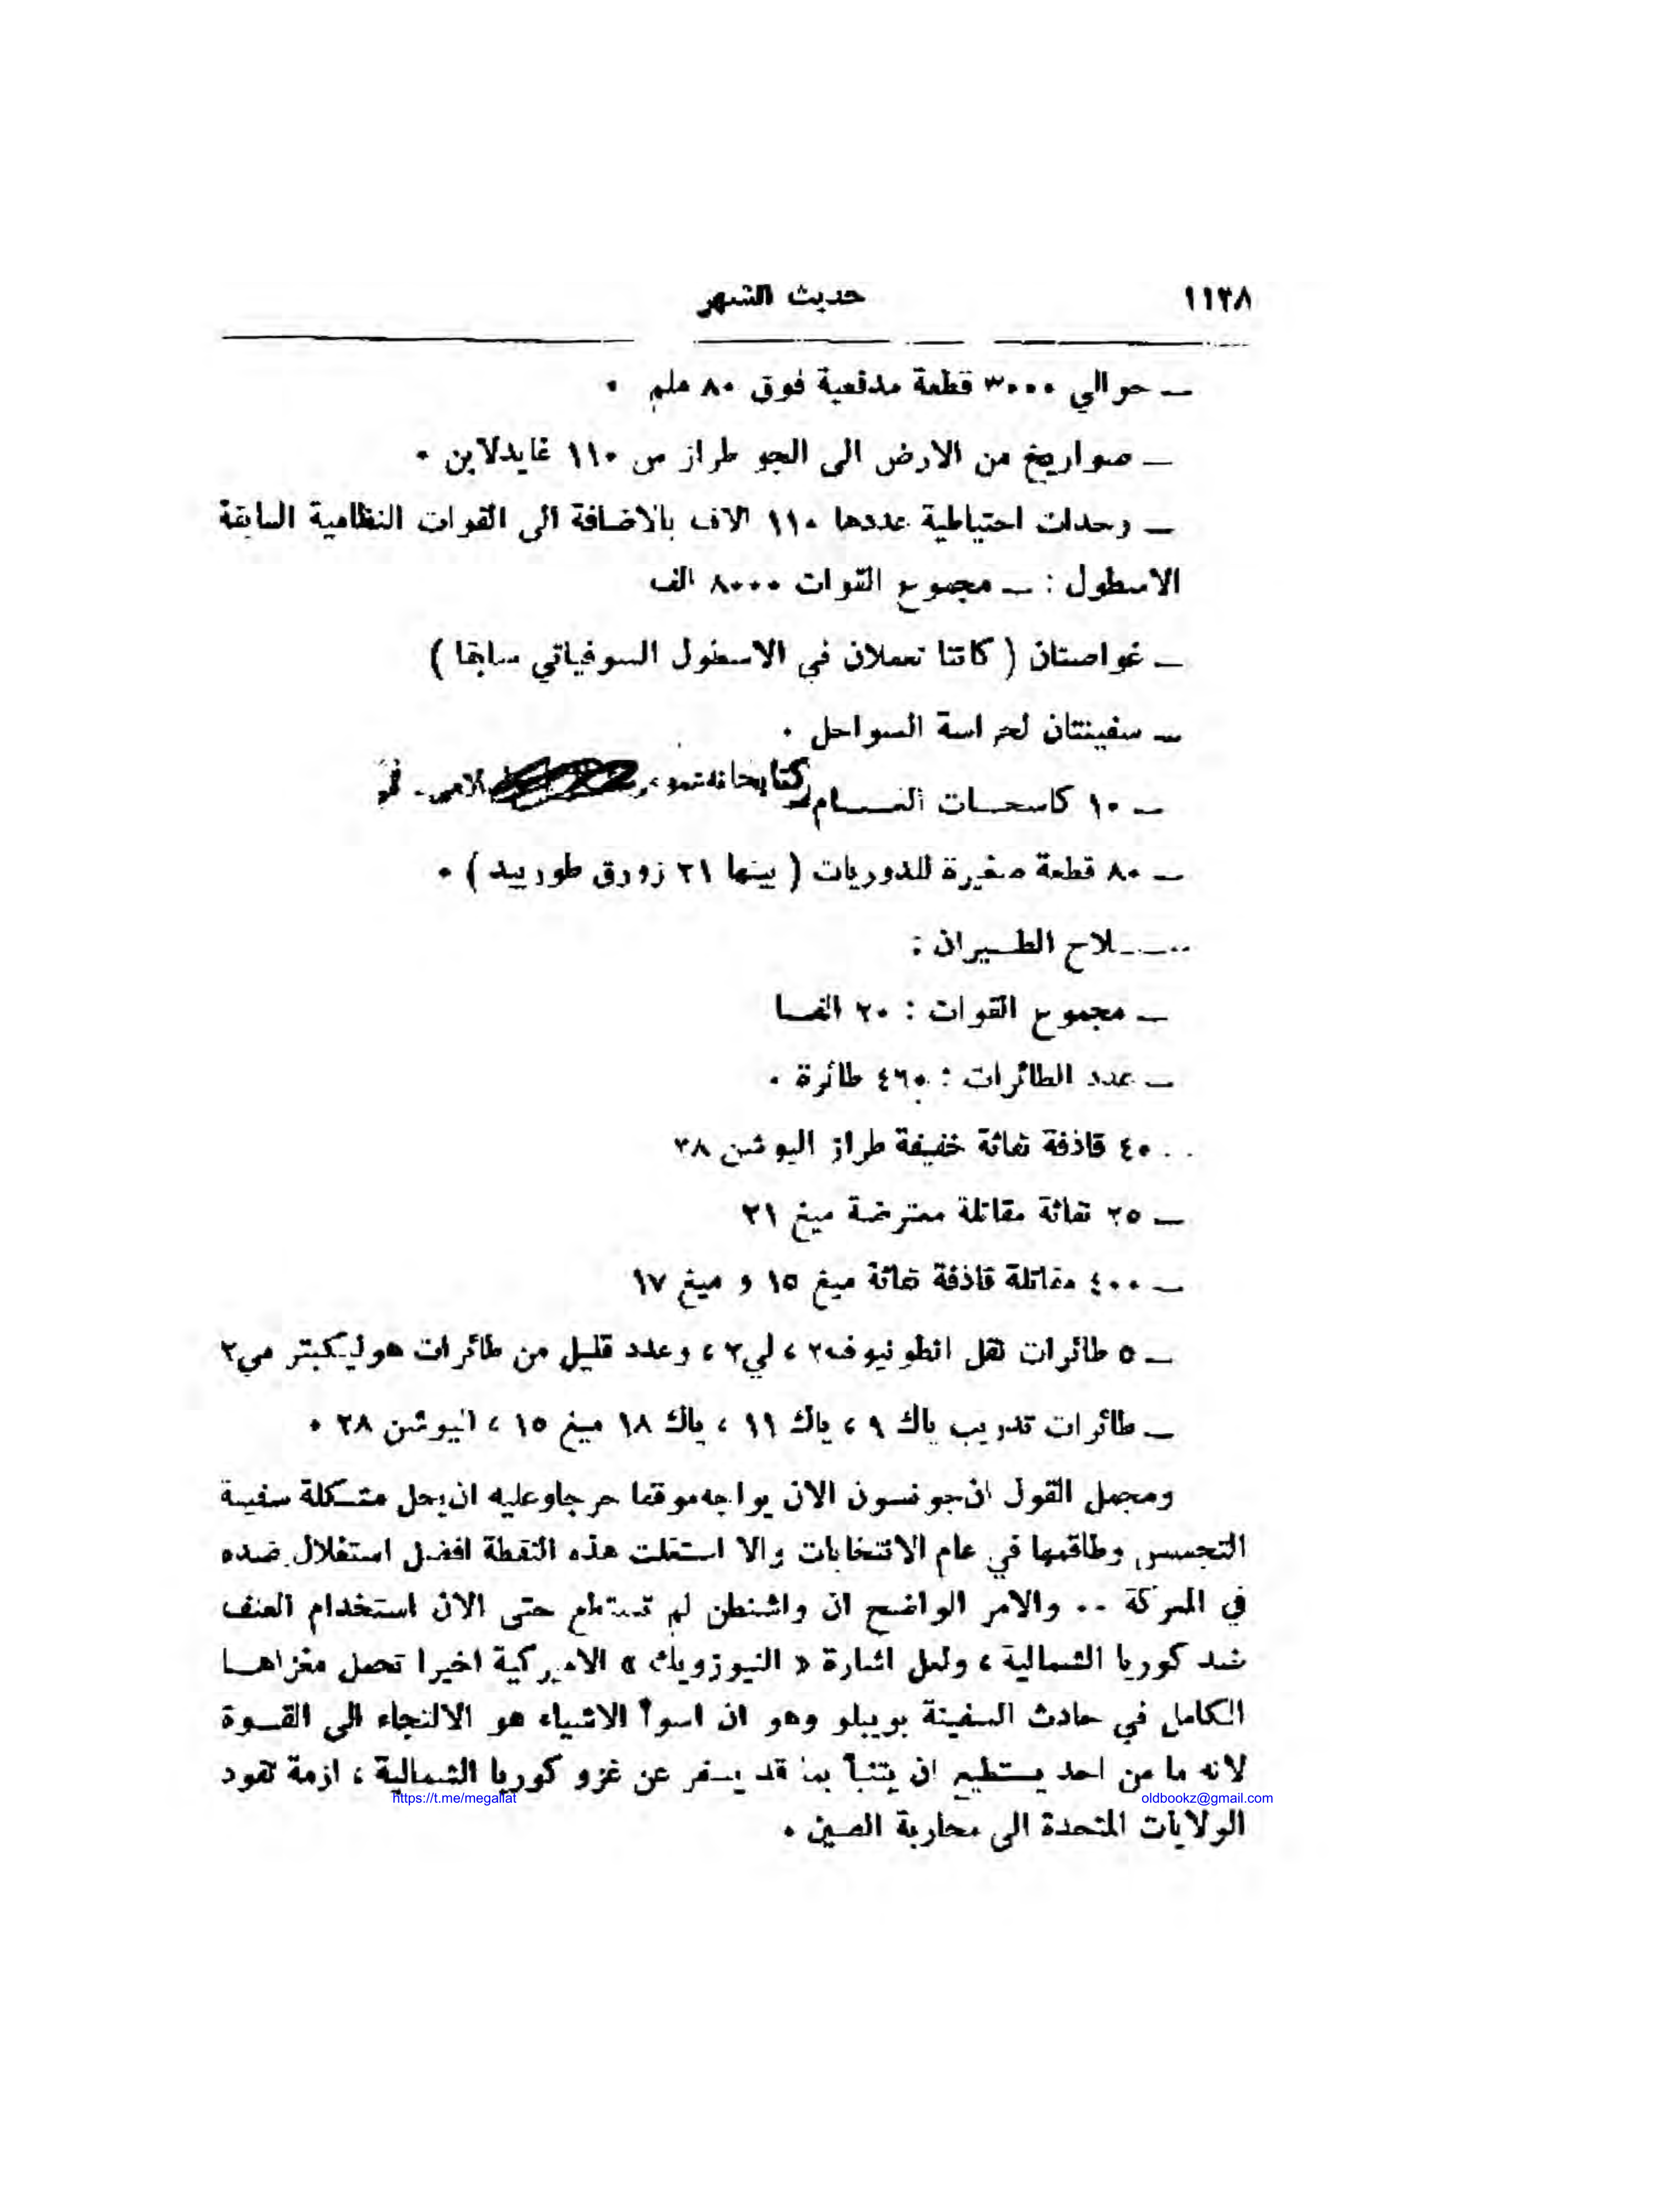 ١١٢٨
حديث الشهر
— حوالي ٣٠٠٠ قطعة مدفعية فوق ٨٠ ملم .
— صواريخ من الارض الى الجو طراز س ١١٠ غايدلاين .
— وحدات احتياطية عددها ١١٠ الاف بالاضافة الى القوات النظامية السابقة
الاسطول : — مجموع القوات ٨٠٠٠ الف
— غواصتان ( كانتا تعملان في الاسطول السوفياتي سابقا )
— سفينتان لحراسة السواحل .
— ١٠ كاسحــات الغــــام
كتابخانه
— ٨٠ قطعة صغيرة للدوريات ( بينها ٢١ زورق طوربيد ) .
ســــلاح الطــيران :
— مجموع القوات : ٢٠ الفــا
— عدد الطائرات : ٤٦٠ طائرة .
— ٤٠ قاذفة نفاثة خفيفة طراز اليوشن ٢٨
— ٢٥ نفاثة مقاتلة معترضة ميغ ٢١
— ٤٠٠ مقاتلة قاذفة نفاثة ميغ ١٥ و ميغ ١٧
— ٥ طائرات نقل انطونيوف٢ ، لي٢ ، وعدد قليل من طائرات هوليكبتر مي٢
— طائرات تدريب ياك ٩ ، ياك ١١ ، ياك ١٨ ميغ ١٥ ، اليوشن ٢٨ .
ومجمل القول ان جونسون الان يواجه موقفا حرجا وعليه ان يحل مشــكلة سفينة
التجسس وطاقمها في عام الانتخابات والا استغلت هذه النقطة افضل استغلال ضده
في المعركة .. والامر الواضح ان واشنطن لم تستطع حتى الان استخدام العنف
ضد كوريا الشمالية ، ولعل اشارة « النيوزويك » الاميركية اخيرا تحمل مغزاهــا
الكامل في حادث السفينة بويبلو وهو ان اسوأ الاشياء هو الالتجاء الى القــوة
لانه ما من احد يستطيع ان يتنبأ بما قد يسفر عن غزو كوريا الشمالية ، ازمة تقود
https://t.me/megallat
oldbookz@gmail.com
الولايات المتحدة الى محاربة الصين .